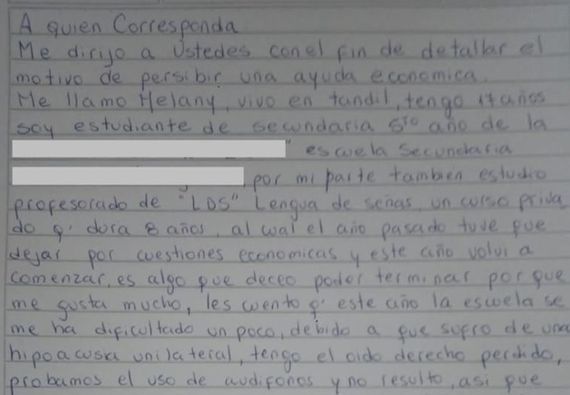 A quien Corresponda
Me dirijo a Ustedes con el fin de detallar el
motivo de persibir una ayuda economica.
Me llamo Melany, vivo en tandil, tengo 17 años
soy estudiante de secundaria 5to año de la
" escuela Secundaria
, por mi parte tambien estudio
profesorado de "LDS" Lengua de señas, un curso priva
do q' dura 8 años, al cual el año pasado tuve que
dejar por cuestiones economicas y este año volvi a
comenzar, es algo que deceo poder terminar por que
me gusta mucho, les cuento q' este año la escuela se
me ha dificultado un poco, debido a que sufro de una
hipoacusia unilateral, tengo el oido derecho perdido,
probamos el uso de audifonos y no resulto, asi que